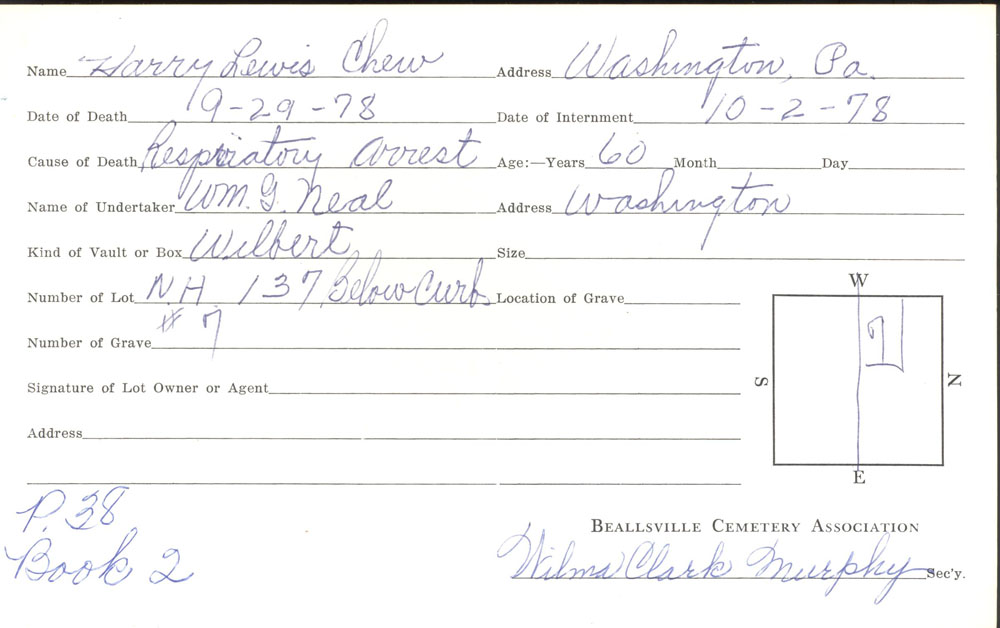 Name Harry Lewis Chew Address Washington, Pa.
Date of Death 9-29-78 Date of Internment 10-2-78
Cause of Death Respiratory Arrest Age:—Years 60 Month Day
Name of Undertaker Wm. G. Neal Address Washington
Kind of Vault or Box Wilbert Size
Number of Lot N.H. 137 Below Curb Location of Grave
Number of Grave # 7
Signature of Lot Owner or Agent
Address
W
S 7 N
E
P. 38
Book 2
BEALLSVILLE CEMETERY ASSOCIATION
Wilma Clark Murphy Sec'y.